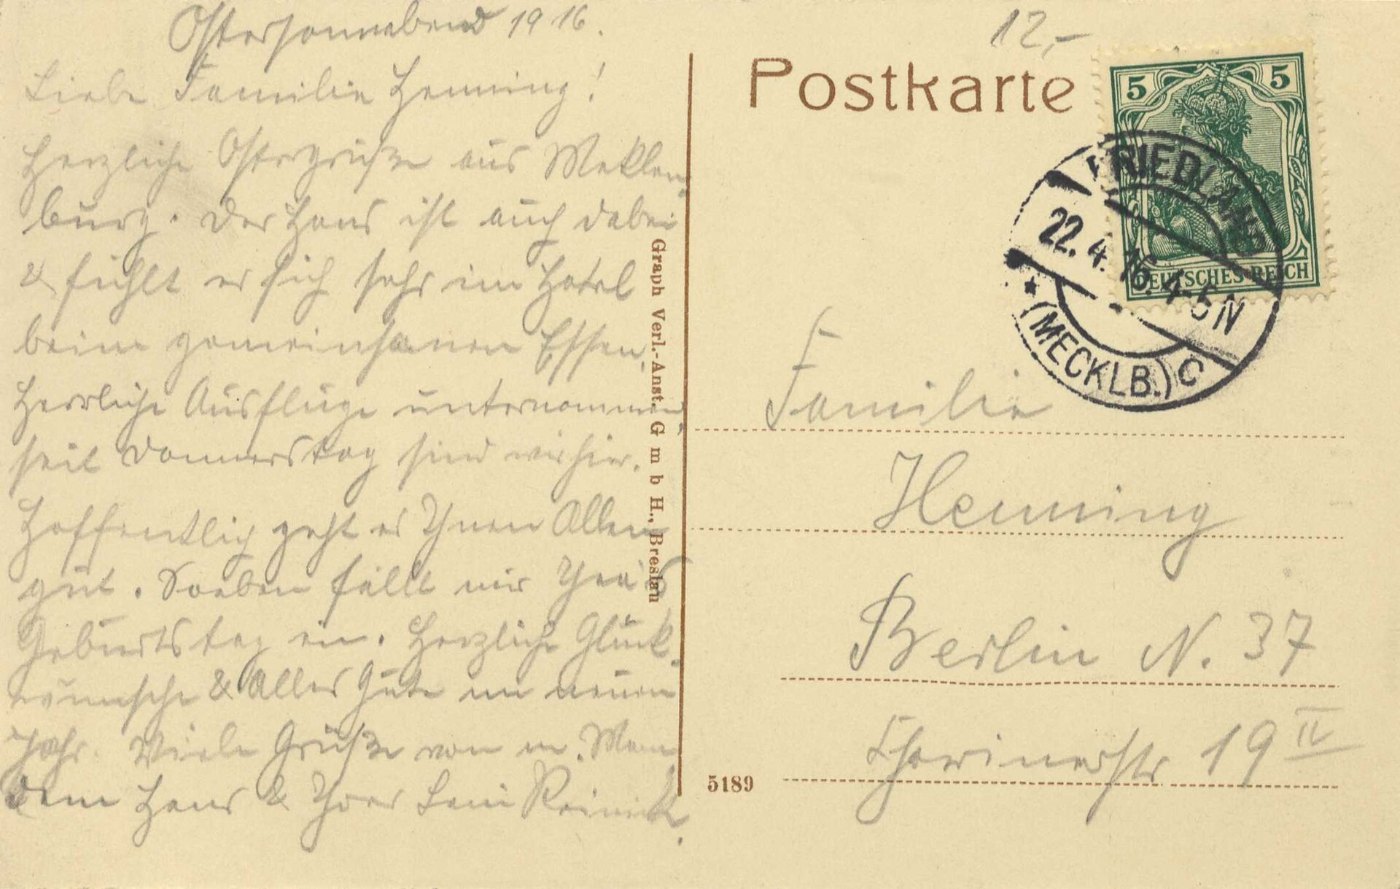 Ostersonnabend 1916.
Liebe Familie Henning!
Herzliche Ostergrüße aus Meklen-
burg. Der Hans ist auch dabei
& fühlt er sich sehr im Hotel
beim gemeinsamen Essen.
Herrliche Ausflüge unternommen,
seit Donnerstag sind wir hier.
Hoffentlich geht es Ihnen Allen
gut. Soeben fällt mir
Geburtstag ein. Herzliche Glück-
wünsche & Alles Gute im neuen
Jahr. Viele Grüße von m. Mann,
dem Hans & Ihrer Leni Reinick.
Graph Verl.-Anst. G m b H., Breslau
12,-
Postkarte
5 5
DEUTSCHES REICH
FRIEDLAND
22.4.16. 4-5N
* (MECKLB.) C
Familie
Henning
Berlin N. 37
Chorinerstr 19 IV
5189